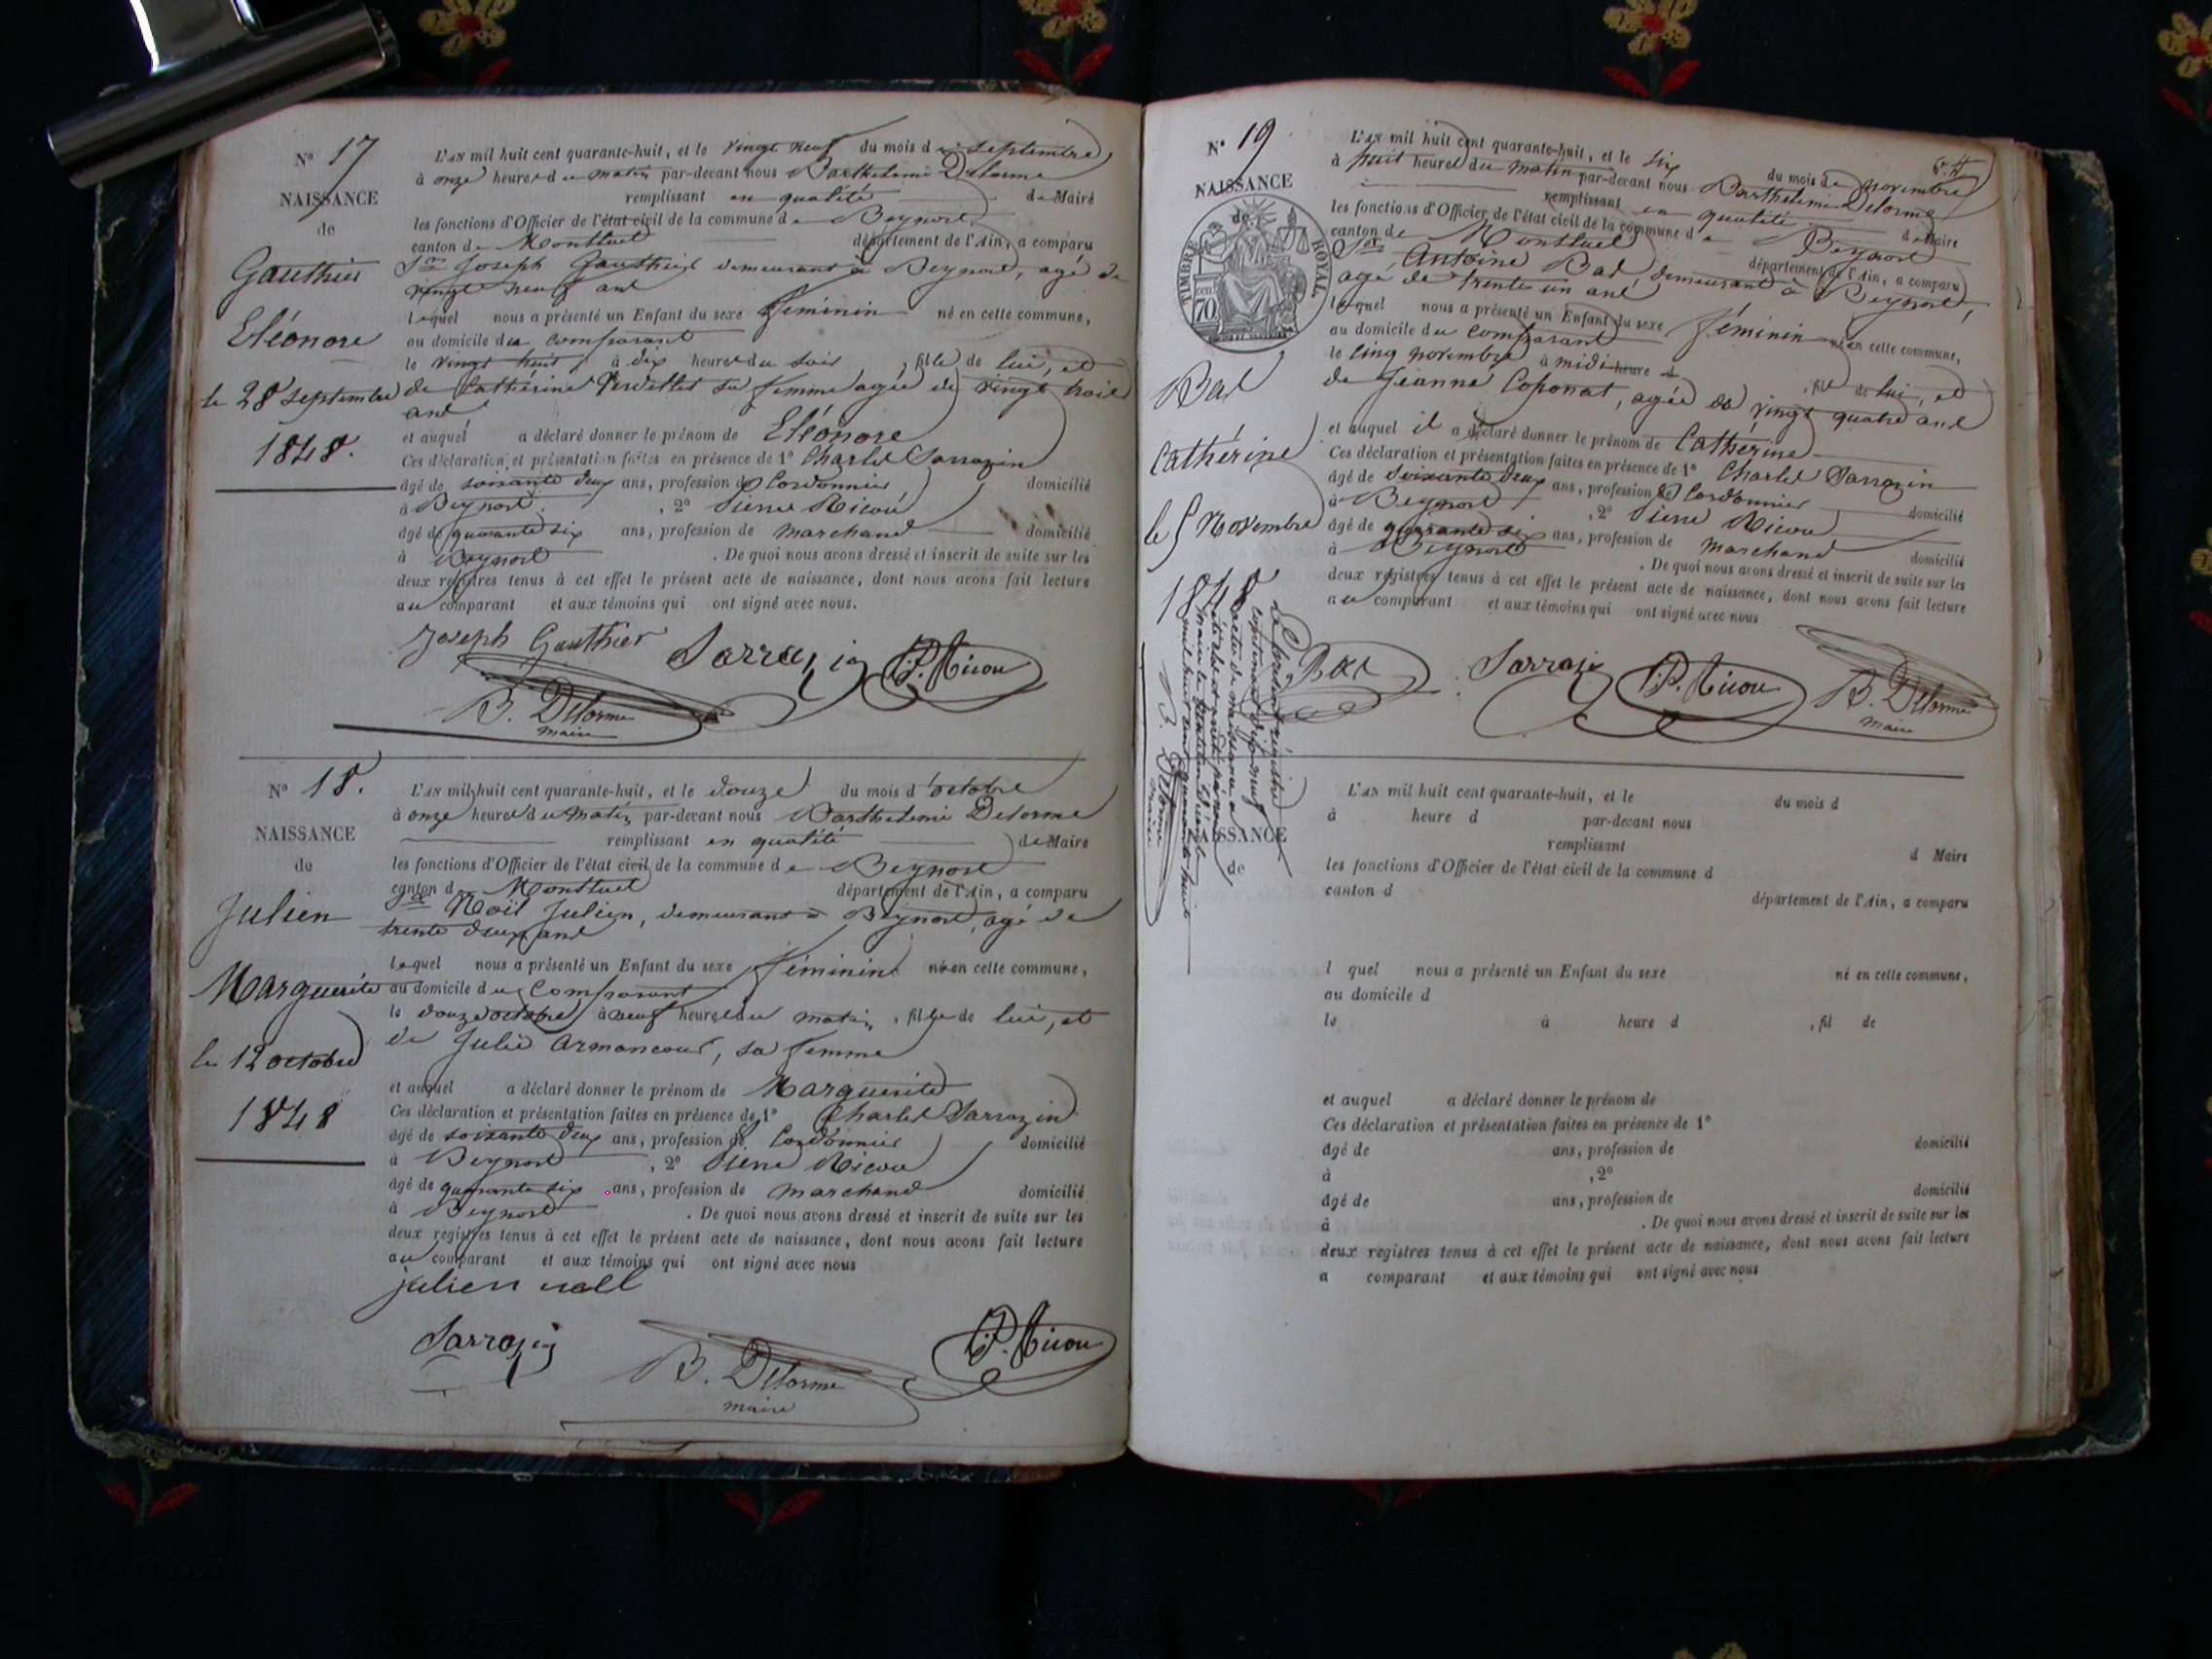 N° 17
NAISSANCE
de
Gauthier
Eléonore
le 28 septembre
1848.
L'AN mil huit cent quarante-huit, et le vingt neuf du mois de septembre,
à onze heures du matin par-devant nous Barthelemi Delorme
remplissant en qualité de Maire
les fonctions d'Officier de l'état civil de la commune de Beynost
canton de Montluel département de l'Ain, a comparu
Sr Joseph Gauthier demeurant à Beynost, agé de
vingt neuf ans
lequel nous a présenté un Enfant du sexe féminin né en cette commune,
au domicile du comparant
le vingt huit, à dix heures du soir, fille de lui, et
de Catherine Verdellet sa femme agée de vingt trois
ans
et auquel a déclaré donner le prénom de Eléonore
Ces déclaration et présentation faites en présence de 1° Charles Sarrazin
âgé de soixante deux ans, profession de Cordonnier domicilié
à Beynost, 2° Pierre Nicou
âgé de quarante six ans, profession de marchand domicilié
à Beynost. De quoi nous avons dressé et inscrit de suite sur les
deux registres tenus à cet effet le présent acte de naissance, dont nous avons fait lecture
au comparant et aux témoins qui ont signé avec nous.
Joseph Gauthier Sarrazin P. Nicou
B. Delorme
maire
N° 18.
NAISSANCE
de
Julien
Marguerite
le 12 octobre
1848
L'AN mil huit cent quarante-huit, et le douze du mois d'octobre
à onze heures du matin par-devant nous Barthelemi Delorme
remplissant en qualité de Maire
les fonctions d'Officier de l'état civil de la commune de Beynost
canton de Montluel département de l'Ain, a comparu
Sr Noël Julien, demeurant à Beynost, agé de
trente deux ans
lequel nous a présenté un Enfant du sexe féminin né en cette commune,
au domicile du Comparant
le douze octobre, à neuf heures du matin, fille de lui, et
de Julie Armancour, sa femme
et auquel a déclaré donner le prénom de Marguerite
Ces déclaration et présentation faites en présence de 1° Charles Sarrazin
âgé de soixante deux ans, profession de Cordonnier domicilié
à Beynost, 2° Pierre Nicou
âgé de quarante six ans, profession de marchand domicilié
à Beynost. De quoi nous avons dressé et inscrit de suite sur les
deux registres tenus à cet effet le présent acte de naissance, dont nous avons fait lecture
au comparant et aux témoins qui ont signé avec nous
julien noell
Sarrazin B. Delorme P. Nicou
maire
N° 19.
NAISSANCE
de
TIMBRE ROYAL
70 cent
Bal
Catherine
le 5 Novembre
1848
L'AN mil huit cent quarante-huit, et le six du mois de novembre
à huit heures du matin par-devant nous Barthelemi Delorme
remplissant en qualité de Maire
les fonctions d'Officier de l'état civil de la commune de Beynost
canton de Montluel département de l'Ain, a comparu
Sr Antoine Bal demeurant à Beynost,
agé de trente un ans
lequel nous a présenté un Enfant du sexe féminin né en cette commune,
au domicile du comparant
le cinq novembre à midi heure d, fil de lui, et
de Jeanne Coponat, agée de vingt quatre ans
et auquel il a déclaré donner le prénom de Catherine
Ces déclaration et présentation faites en présence de 1° Charles Sarrazin
âgé de soixante deux ans, profession de Cordonnier domicilié
à Beynost, 2° Pierre Nicou
âgé de quarante six ans, profession de marchand domicilié
à Beynost. De quoi nous avons dressé et inscrit de suite sur les
deux registres tenus à cet effet le présent acte de naissance, dont nous avons fait lecture
au comparant et aux témoins qui ont signé avec nous
Bal Sarrazin P. Nicou B. Delorme
maire
Le présent registre
contenant dix neuf
actes de naissance, a
été clos et arrêté par nous
maire le trente un Décembre
mil huit cent quarante huit
B. Delorme
maire
NAISSANCE
de
L'AN mil huit cent quarante-huit, et le du mois d
à heure d par-devant nous
remplissant d Maire
les fonctions d'Officier de l'état civil de la commune d
canton d département de l'Ain, a comparu
l quel nous a présenté un Enfant du sexe né en cette commune,
au domicile d
le à heure d , fil de
et auquel a déclaré donner le prénom de
Ces déclaration et présentation faites en présence de 1°
âgé de ans, profession de domicilié
à , 2°
âgé de ans, profession de domicilié
à . De quoi nous avons dressé et inscrit de suite sur les
deux registres tenus à cet effet le présent acte de naissance, dont nous avons fait lecture
a comparant et aux témoins qui ont signé avec nous